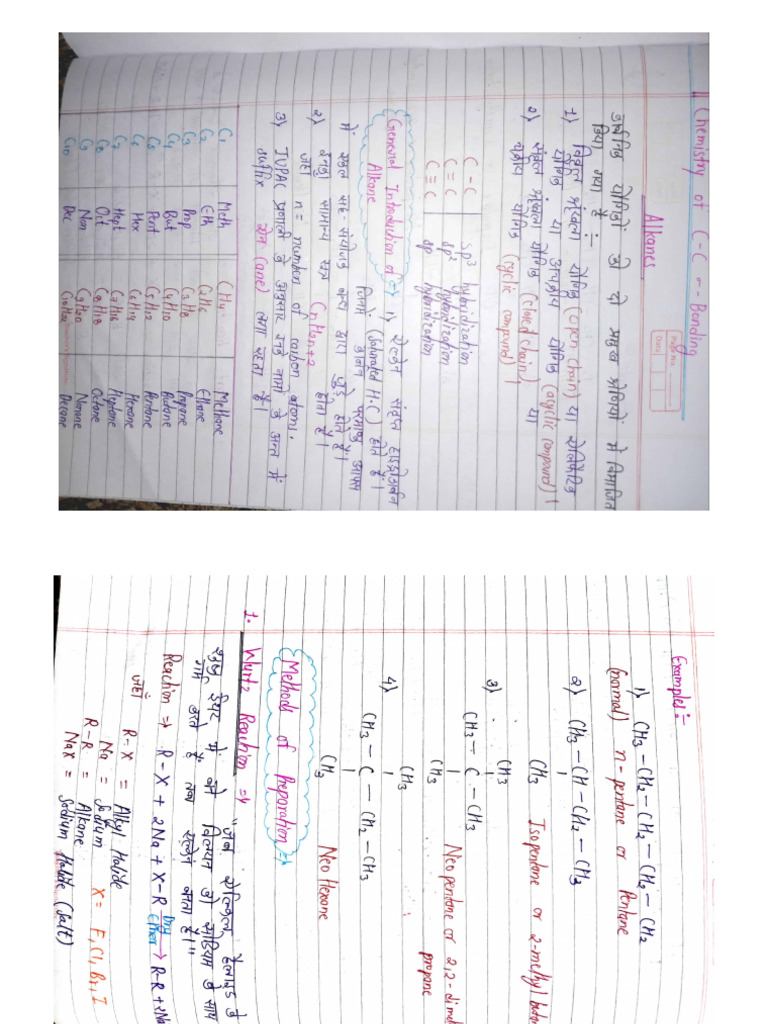 Chemistry of C-C σ-Bonding
Alkanes
कार्बनिक यौगिकों को दो प्रमुख श्रेणियों में विभाजित
किया गया है :-
1) विवृत श्रृंखला यौगिक (open chain) या ऐलिफैटिक
यौगिक या अचक्रीय यौगिक (acyclic compound)।
2) संवृत श्रृंखला यौगिक (closed chain) या
चक्रीय यौगिक (cyclic compound)।
C - C sp³ hybridization
C = C sp² hybridization
C ≡ C sp hybridization
General Introduction of Alkane ⇒ 1) ऐल्केन संतृप्त हाइड्रोकार्बन
(Saturated H.C) होते हैं।
जिनमें कार्बन परमाणु आपस
में एकल सह संयोजक बन्ध द्वारा जुड़े होते हैं।
2) इनका सामान्य सूत्र CnH2n+2 होता है।
जहाँ n = number of carbon atoms.
3) IUPAC प्रणाली के अनुसार इनके नामों के अन्त में
suffix ऐन (ane) लगा रहता है।
C1 Meth CH4 Methane
C2 Eth C2H6 Ethane
C3 Prop C3H8 Propane
C4 But C4H10 Butane
C5 Pent C5H12 Pentane
C6 Hex C6H14 Hexane
C7 Hept C7H16 Heptane
C8 Oct C8H18 Octane
C9 Non C9H20 Nonane
C10 Dec C10H22 Decane
Examples :-
1) CH3-CH2-CH2-CH2-CH2
(normal) n-pentane or Pentane
2) CH3-CH-CH2-CH3
CH3 Isopentane or 2-methyl butan
3) CH3
CH3-C-CH3
CH3 Neopentane or 2,2-dimet
propane
4) CH3
CH3-C-CH2-CH3
CH3 Neo Hexane
Methods of Preparation ⇒
1. Wurtz Reaction ⇒ "जब ऐल्किल हैलाइड के
शुष्क ईथर में बने विलयन को सोडियम के साथ
गर्म करते हैं तब ऐल्केन बनता है।"
Reaction ⇒ R-X + 2Na + X-R Dry Ether → R-R + 2Na
जहाँ R-X = Alkyl Halide
Na = Sodium X = F, Cl, Br, I
R-R = Alkane
NaX = Sodium Halide (Salt)